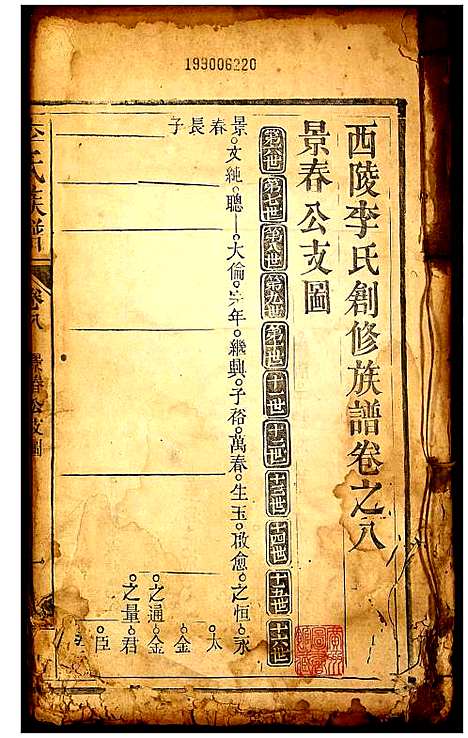 199006220
西陵李氏創修族譜卷之八
景春公支圖
第六世 第七世 第八世 第九世 第十世 十一世 十二世 十三世 十四世 十五世 十六世
景春長子
文純 聰一 大倫 年 繼興 子裕 萬春 生玉 啟愈 之恒 永
太
金
之通 金
之量 君
臣
李氏族譜
卷八 景春公支圖 一